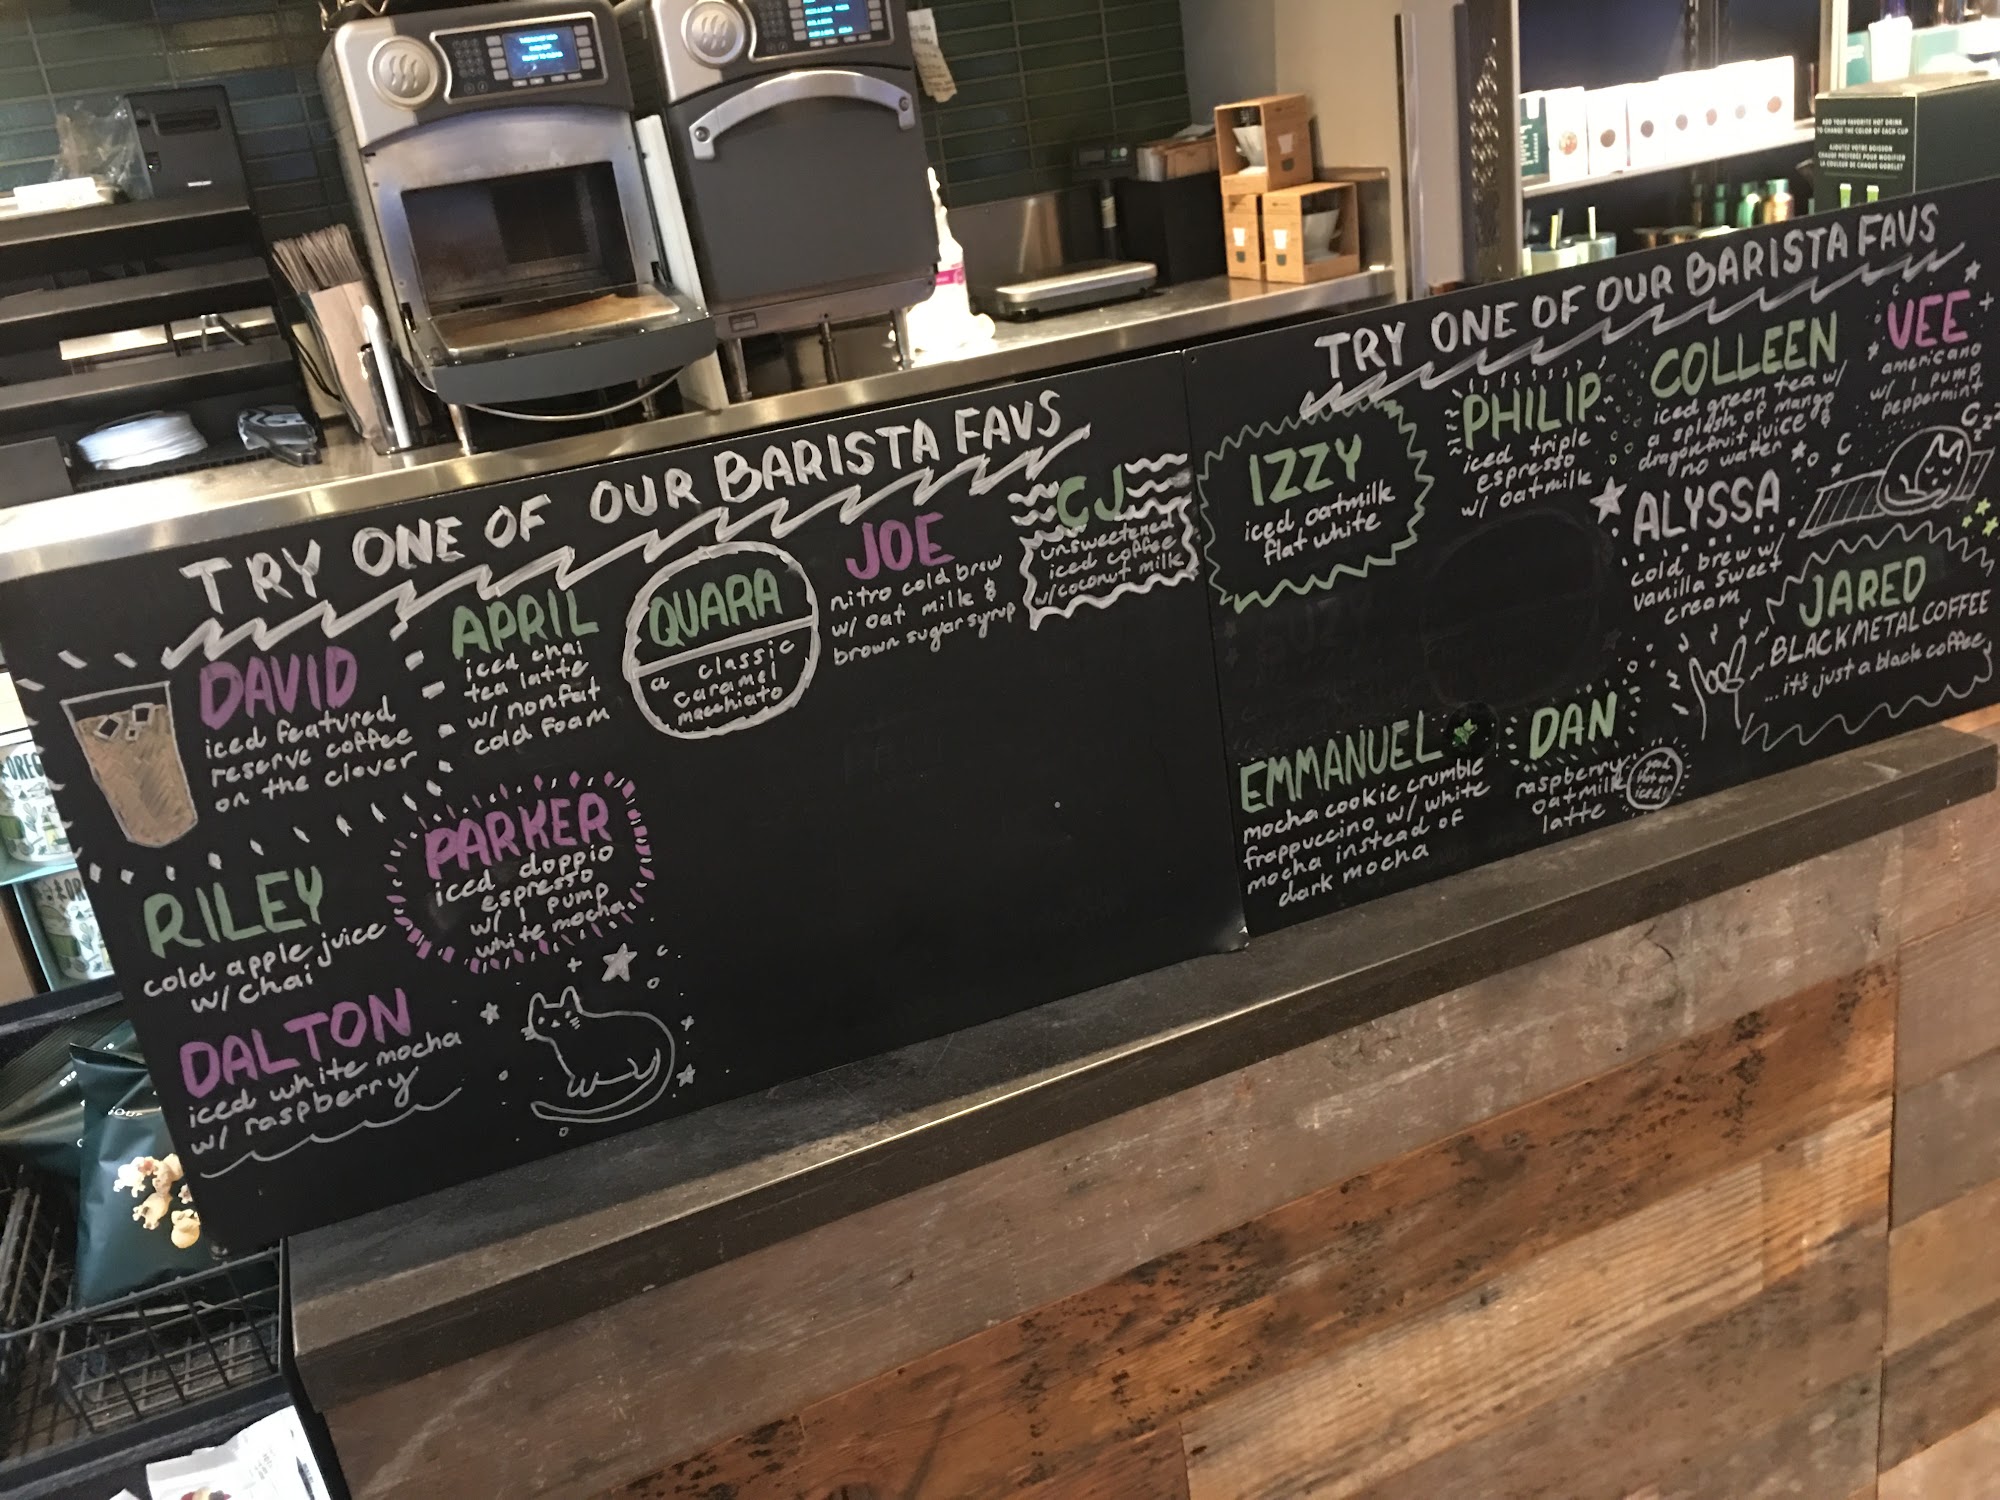 TRY ONE OF OUR BARISTA FAVS
DAVID
iced featured
reserve coffee
on the clover
APRIL
iced chai
tea latte
w/ nonfat
cold foam
QUARA
a classic
caramel
macchiato
JOE
nitro cold brew
w/ oat milk &
brown sugar syrup
CJ
unsweetened
iced coffee
w/coconut milk
RILEY
cold apple juice
w/ chai
PARKER
iced doppio
espresso
w/ 1 pump
white mocha
DALTON
iced white mocha
w/ raspberry
TRY ONE OF OUR BARISTA FAVS
IZZY
iced oatmilk
flat white
PHILIP
iced triple
espresso
w/ oatmilk
COLLEEN
iced green tea w/
a splash of mango
dragonfruit juice &
no water
VEE
americano
w/ 1 pump
peppermint
ALYSSA
cold brew w/
vanilla sweet
cream
JARED
BLACK METAL COFFEE
...it's just a black coffee
EMMANUEL
mocha cookie crumble
frappuccino w/ white
mocha instead of
dark mocha
DAN
raspberry
oatmilk
latte
good
hot or
iced!
ADD YOUR FAVORITE HOT DRINK
TO CHANGE THE COLOR OF EACH CUP
AJOUTEZ VOTRE BOISSON
CHAUDE PRÉFÉRÉE POUR MODIFIER
LA COULEUR DE CHAQUE GOBELET